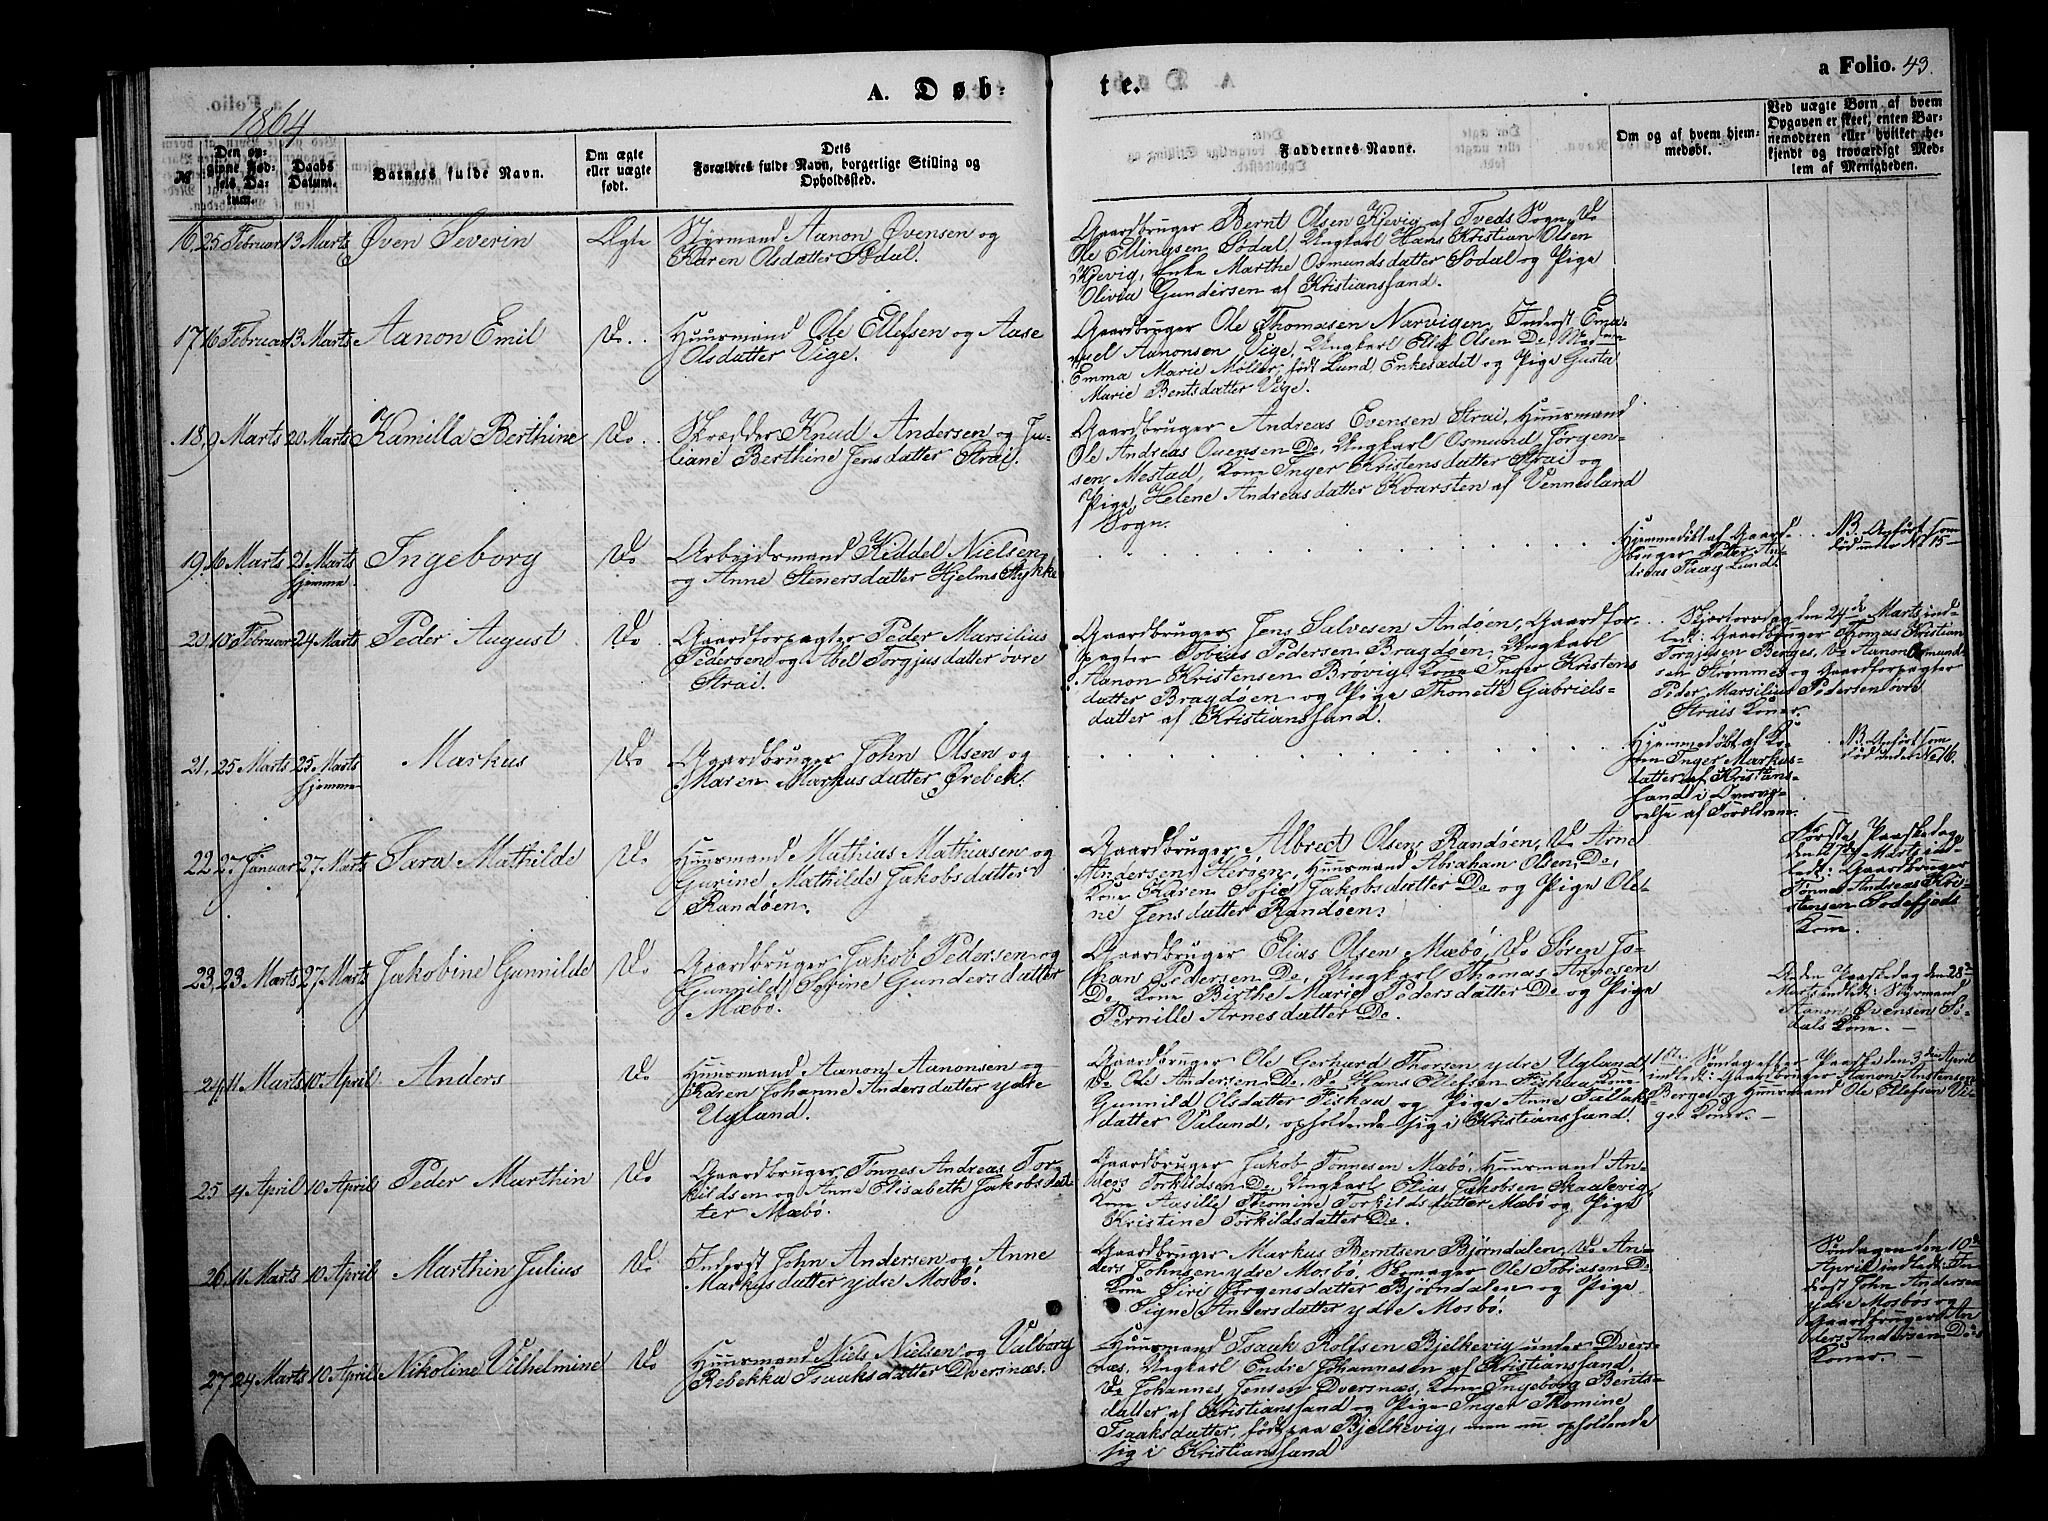 A. Døb-
te.
a Folio. 43.
1864
№
Den op-
givne Fød-
sels Da-
tum.
Daabs
Datum.
Barnets fulde Navn.
Om ægte
eller uægte
født.
Dets
Forældres fulde Navn, borgerlige Stilling og
Opholdssted.
Faddernes Navne.
Om og af hvem hjem-
medøbt.
Ved uægte Børn af hvem
Opgaven er skeet, enten Bar-
nemoderen eller hvilket be-
kjendt og troværdigt Med-
lem af Menigheden.
16, 25 Februar 13 Marts Øven Severin Ægte
Styrmand Aanon Øvensen og
Karen Olsdatter Sødal.
Gaardbruger Bernt Olsen Kjevig af Tveds Sogn, Do
Ole Ellingsen Sødal, Ungkarl Hans Kristian Olsen
Kjevig, Enke Marthe Osmundsdatter Sødal og Pige
Olivia Gundersen af Kristianssand.
17, 16 Februar 13 Marts Aanon Emil Do
Huusmand Ole Ellefsen og Aase
Olsdatter Vige.
Gaardbruger Ole Thomasen Narvigen, Inderst Ema-
nuel Aanonsen Vige, Ungkarl Ellef Olsen De, Madam
Emma Marie Møller, født Lund, Enkesædet og Pige Gusta
Marie Bentsdatter Vige.
18, 9 Marts 20 Marts Kamilla Berthine Do
Skrædder Knud Andersen og Ju-
liane Berthine Jensdatter Strai.
Gaardbruger Andreas Evensen Strai, Huusmand
Ole Andreas Ovensen De, Ungkarl Osmund Jørgen-
sen Mestad, Kone Inger Kristensdatter Strai og
Pige Helene Andreasdatter Kvarsten af Vennesland
Sogn.
19, 16 Marts 21 Marts Ingeborg Do
hjemme
Arbeidsmand Keddel Nielsen
og Anne Stenersdatter Hjelms Stykke
Hjemmedøbt af Gaard-
bruger Peter An-
dreas Faag Lund.
NB. Anført som
død under No 15
20, 18 Februar 24 Marts Peder August Do
Gaardforpagter Peder Marsilius
Pedersen og Abel Torgjusdatter øvre
Strai.
Gaardbruger Jens Salvesen Andøen, Gaardfor-
pagter Tobias Pedersen Bragdøen, Ungkarl
Aanon Kristensen Brøvig, Kone Inger Kristens
datter Bragdøen og Pige Thonette Gabriels-
datter af Kristianssand.
Skjertorsdag den 24de Marts ind-
ledt: Gaardbruger Thomas Kristian
Torgjusen Berges, Do Aanon Osmund-
sen Strømmes og Gaardforpagter
Peder Marsilius Pedersen øvre
Strais Koner.
21, 25 Marts 25 Marts Markus Do
hjemme
Gaardbruger John Olsen og
Maren Markusdatter Ørebek.
Hjemmedøbt af Ko-
nen Inger Markus-
datter af Kristians-
sand i Overvæ-
relse af Forældrene.
NB. Anført som
død under No 16.
22 27 Januar 27 Marts Sara Mathilde Do
Huusmand Mathias Mathiasen og
Gurine Mathilde Jakobsdatter
Randøen.
Gaardbruger Albrect Olsen Randøen, Do Arne
Andersen Herøen, Huusmand Abraham Olsen De,
Kone Karen Sofie Jakobsdatter De og Pige Ole-
ne Jensdatter Randøen.
Første Paaskedag
den 27de Marts ind-
ledt: Gaardbruger
Tønnes Andreas Kri-
stensen Sodefjeds
Kone.
23, 23 Marts 27 Marts Jakobine Gunnilde Do
Gaardbruger Jakob Pedersen og
Gunnild Serine Gundersdatter
Mæbø.
Gaardbruger Elias Olsen Mæbø, Do Søren Jo-
han Pedersen De, Ungkarl Thomas
De, Kone Birthe Marie Pedersdatter De og Pige
Pernille Arnesdatter De.
Anden Paaskedag den 28de
Marts indledt: Styrmand
Aanon Øvensen Sø-
dals Kone.
24, 11 Marts 10 April Anders Do
Huusmand Aanon Aanonsen og
Karen Johanne Andersdatter ydre
Ugland.
Gaardbruger Ole Gerhard Thorsen ydre Ugland,
Do Ole Andersen De, Do Hans Ellefsen Fiskaa, Kone
Gunnild Olsdatter Fiskaa og Pige Anne Tallaks-
datter Valand, opholdende sig i Kristianssand.
1ste Søndag efter Paaske den 3die April
indledt: Gaardbruger Aanon Anstensen
Berges og Huusmand Ole Ellefsen Vi-
ges Koner.
25 4 April 10 April Peder Marthin Do
Gaardbruger Tønnes Andreas Tor-
kildsen og Anne Elisabeth Jakobsdat-
ter Mæbø.
Gaardbruger Jakob Tønnesen Mæbø, Huusmand An-
ders Torkildsen De, Ungkarl Elias Jakobsen Skaalevig,
Kone Aasille Thomine Torkildsdatter Mæbø og Pige
Kristine Torkildsdatter De.
26, 11 Marts 10 April Marthin Julius Do
Inderst John Andersen og Anne
Markusdatter ydre Mosbø.
Gaardbruger Markus Berntsen Bjørndalen, Do An-
ders Johnsen ydre Mosbø, Skomager Ole Tobiasen De,
Kone Siri Jørgensdatter Bjørndalen og Pige
Signe Andersdatter ydre Mosbø.
Søndagen den 10de
April indledt: In-
derst John Andersen
ydre Mosbøs og
Gaardbruger An-
ders Andersen De's
Koner.
27 24 Marts 10 April Nikoline Vilhelmine Do
Huusmand Niels Nielsen og Valborg
Rebekka Isaaksdatter Dversnæs.
Huusmand Isaak Rolfsen Bjelkevig under Dvers-
næs, Ungkarl Endre Johannesen af Kristianssand,
Do Johannes Jensen Dversnæs, Kone Ingeborg Bernts-
datter af Kristianssand og Pige Inger Thomine
Isaaksdatter, født paa Bjelkevig, men nu opholdende
sig i Kristianssand